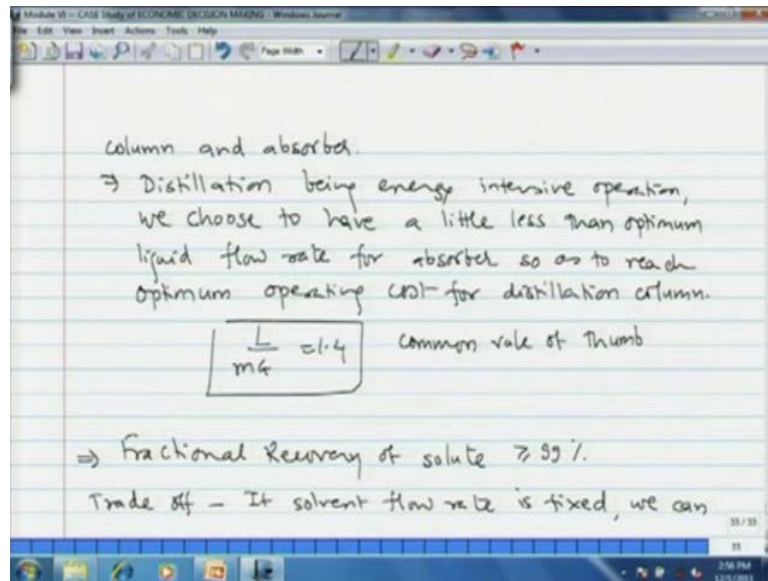 Module VI - CASE Study of ECONOMIC DECISION MAKING - Windows Journal
File Edit View Insert Actions Tools Help
Page Width
column and absorber.
⇒ Distillation being energy intensive operation,
we choose to have a little less than optimum
liquid flow rate for absorber so as to reach
optimum operating cost for distillation column.
L/mG = 1.4 common rule of Thumb
⇒ Fractional Recovery of solute ≥ 99%.
Trade off - If solvent flow rate is fixed, we can
33 / 33
33
2:56 PM